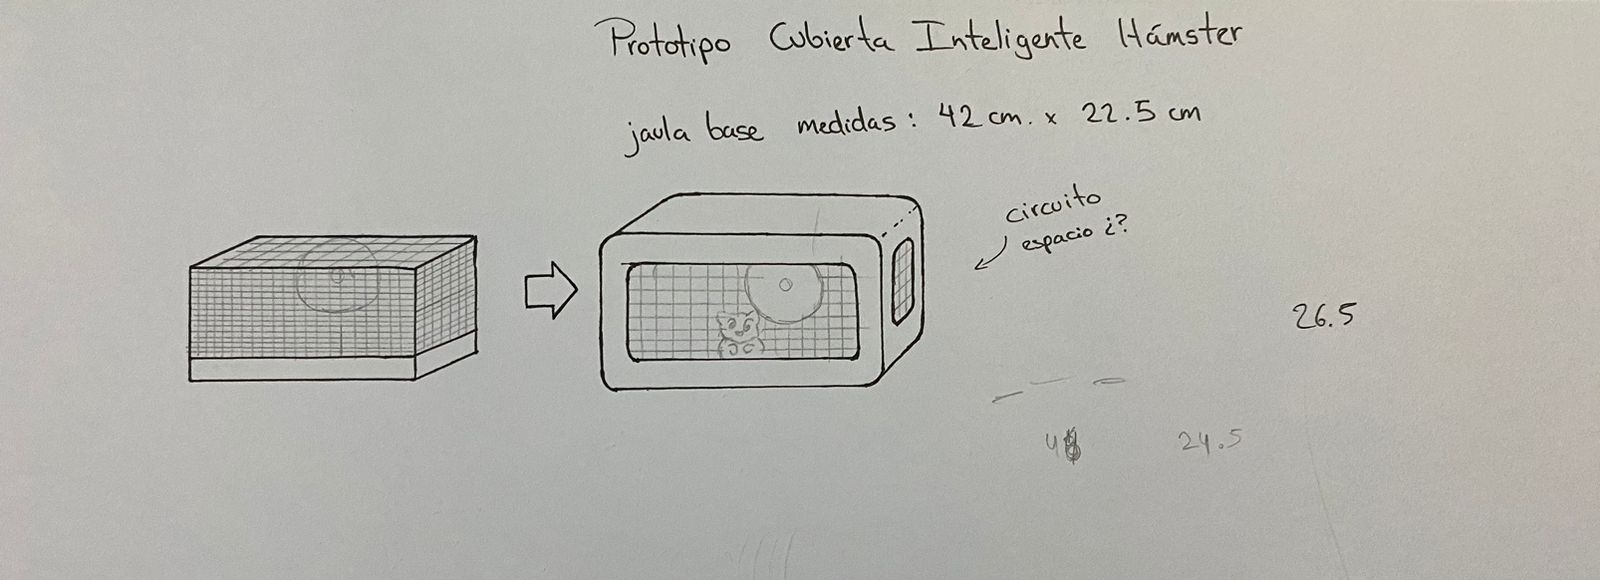 Prototipo Cubierta Inteligente Hámster
jaula base medidas: 42 cm. x 22.5 cm
circuito
espacio ¿?
26.5
24.5